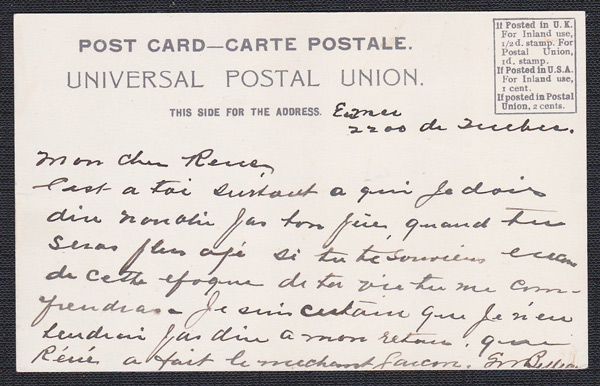 POST CARD—CARTE POSTALE.
UNIVERSAL POSTAL UNION.
THIS SIDE FOR THE ADDRESS.
If Posted in U. K.
For Inland use,
1/2d. stamp. For
Postal Union,
1d. stamp.
If Posted in U.S.A.
For Inland use,
1 cent.
If posted in Postal
Union, 2 cents.
En mer
2200 de Quebec.
Mon cher Rene,
C'est a toi surtout a qui Je dois
dire N'oublie pas ton père, quand tu
seras plus agé si tu te souviens
de cette epoque de ta vie tu me com-
prendras - Je suis certain que Je n'en
tendrai pas dire a mon retour, que
Réné a fait le mechant garcon.